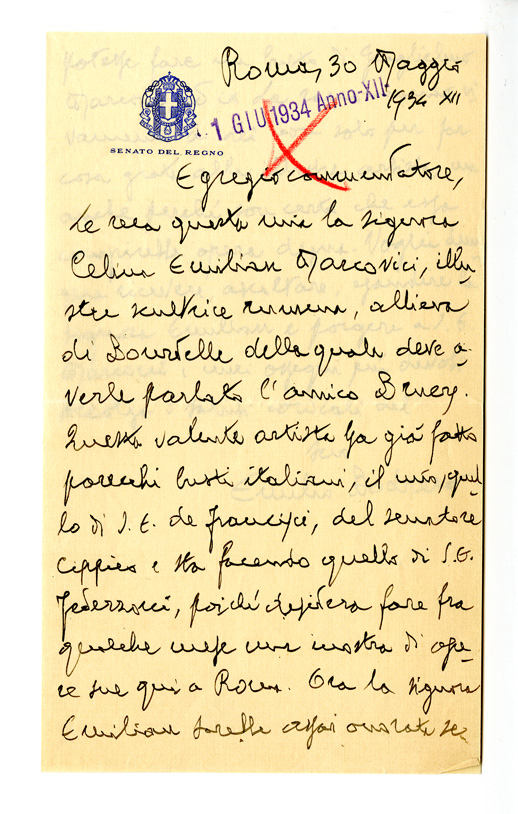 Roma, 30 Maggio
1934 XII
1 GIU 1934 Anno-XII
SENATO DEL REGNO
Egregio commendatore,
Le reca questa mia la signora
Celina Emilian Marcovici, illu-
stre scultrice rumena, allieva
di Bourdelle della quale deve a-
verle parlato l'amico Bruers.
Questa valente artista ha già fatto
parecchi busti italiani, il mio, quel-
lo di S. E. de Francisci, del senatore
Cippico e sta facendo quello di S. E.
Federzoni, poiché desidera fare fra
qualche mese una mostra di ope-
re sue qui a Roma. Ora la signora
Emilian sarebbe assai onorata se